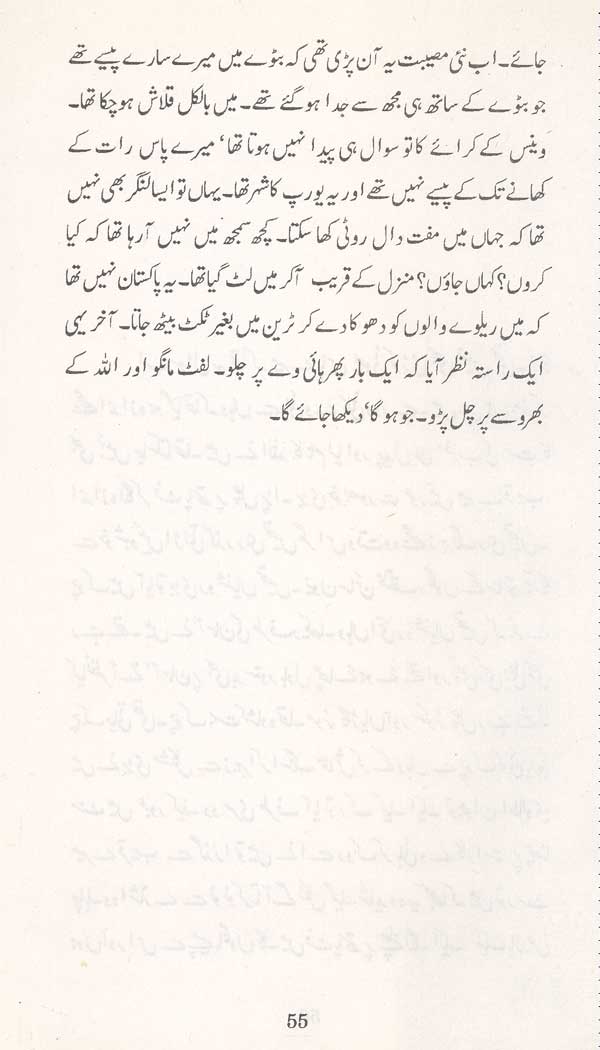 جائے۔ اب نئی مصیبت یہ آن پڑی تھی کہ بٹوے میں میرے سارے پیسے تھے
جو بٹوے کے ساتھ ہی مجھ سے جدا ہو گئے تھے۔ میں بالکل قلاش ہو چکا تھا۔
وینس کے کرائے کا تو سوال ہی پیدا نہیں ہوتا تھا‘ میرے پاس رات کے
کھانے تک کے پیسے نہیں تھے اور یہ یورپ کا شہر تھا۔ یہاں تو ایسا لنگر بھی نہیں
تھا کہ جہاں میں مفت دال روٹی کھا سکتا۔ کچھ سمجھ میں نہیں آ رہا تھا کہ کیا
کروں؟ کہاں جاؤں؟ منزل کے قریب آ کر میں لٹ گیا تھا۔ یہ پاکستان نہیں تھا
کہ میں ریلوے والوں کو دھوکا دے کر ٹرین میں بغیر ٹکٹ بیٹھ جاتا۔ آخر یہی
ایک راستہ نظر آیا کہ ایک بار پھر ہائی وے پر چلو۔ لفٹ مانگو اور اللہ کے
بھروسے پر چل پڑو۔ جو ہو گا‘ دیکھا جائے گا۔
55